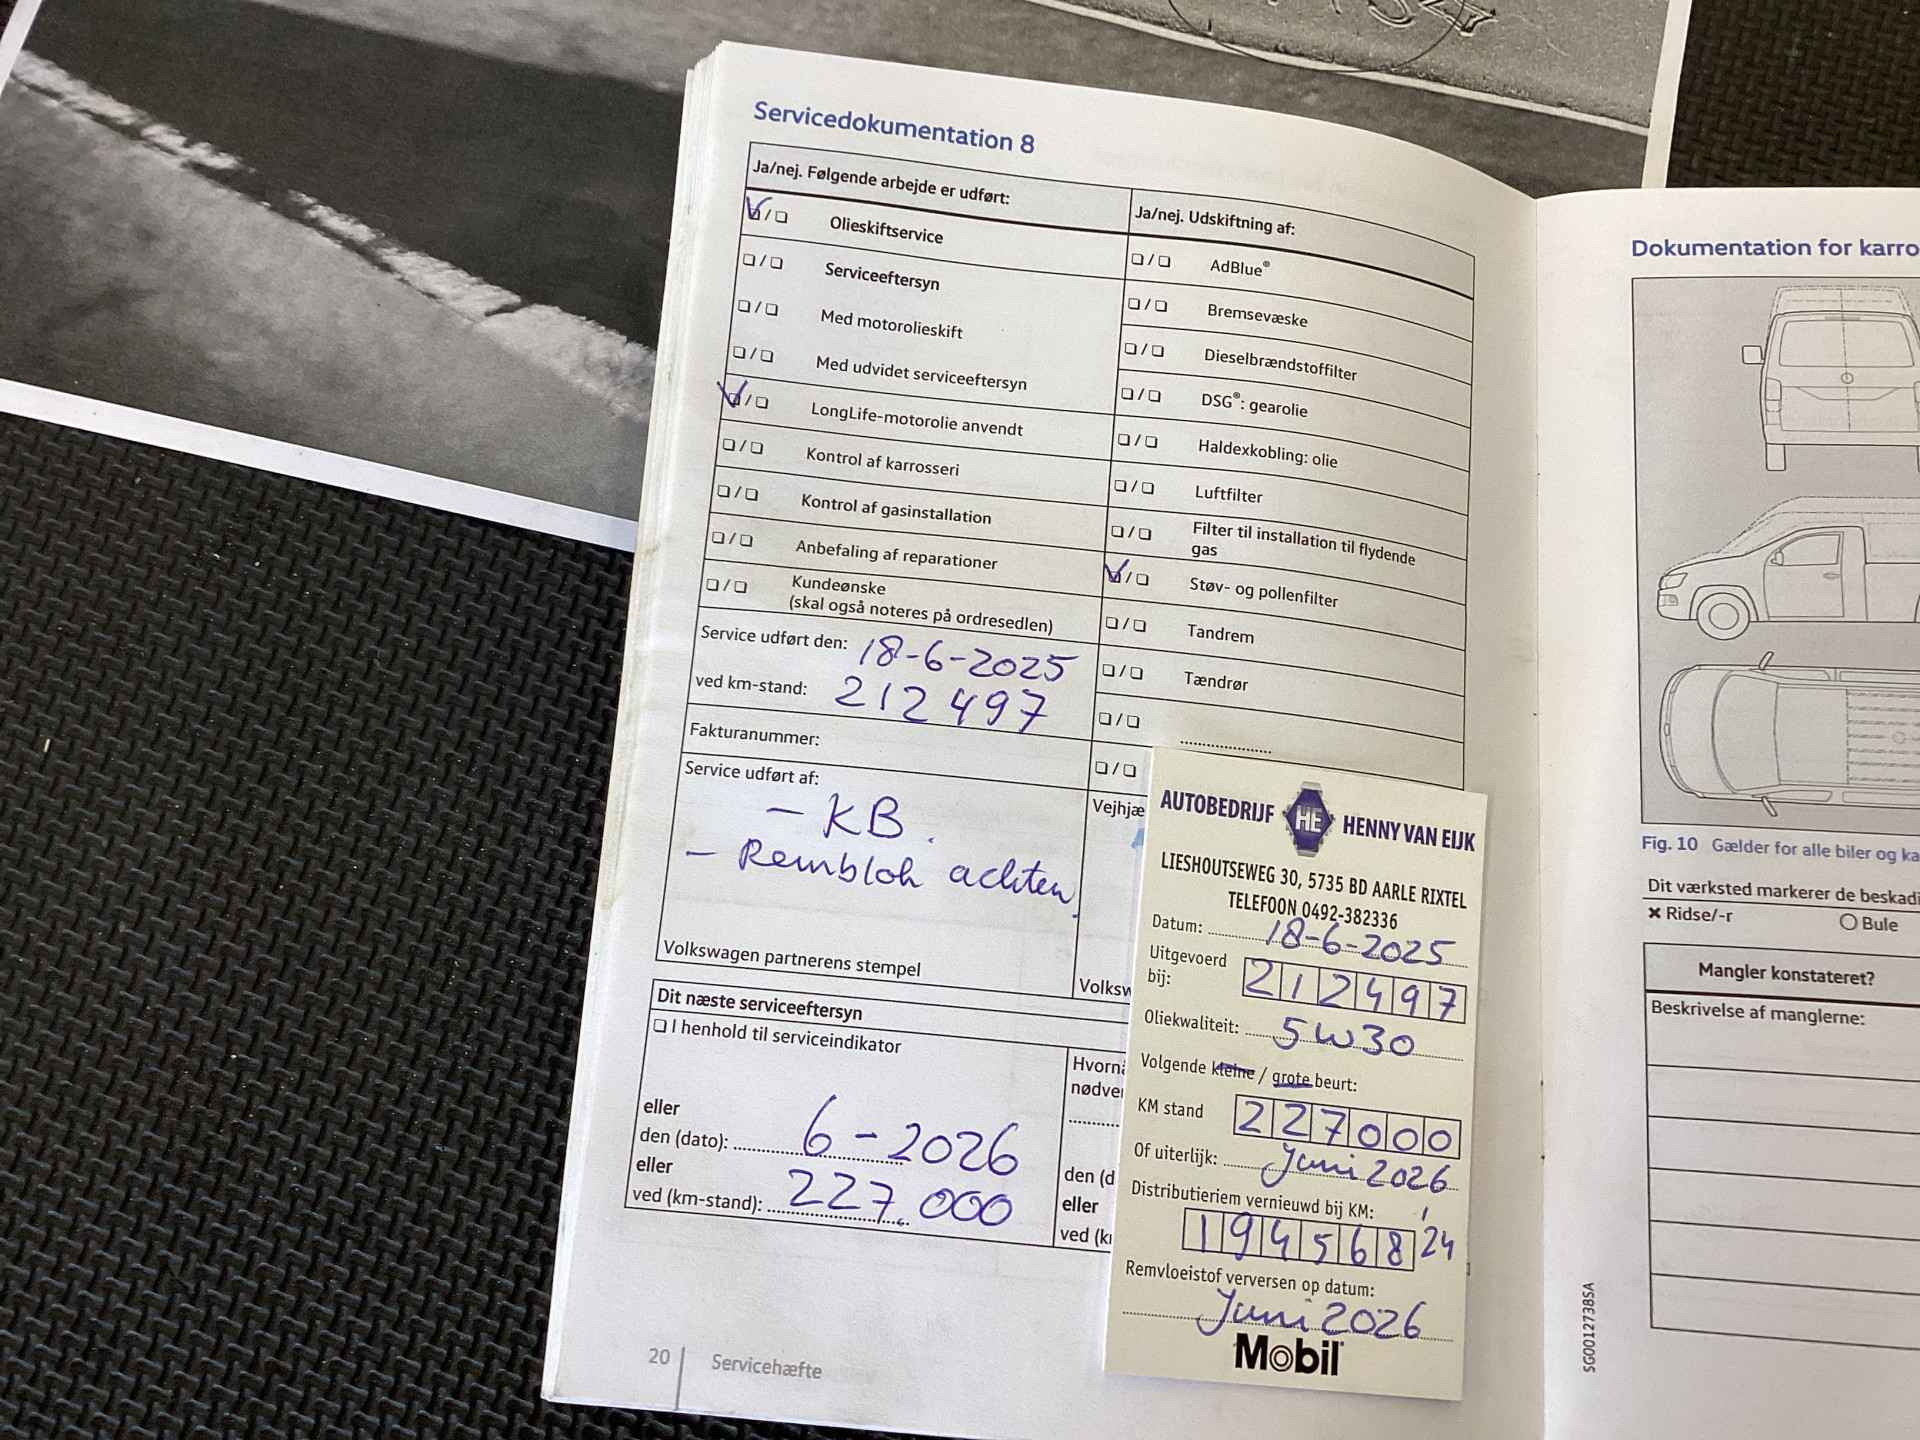 Servicedokumentation 8
Ja/nej. Følgende arbejde er udført:
Olieskiftservice
Serviceeftersyn
Med motorolieskift
Med udvidet serviceeftersyn
LongLife-motorolie anvendt
Kontrol af karrosseri
Kontrol af gasinstallation
Anbefaling af reparationer
Kundeønske
(skal også noteres på ordresedlen)
Service udført den: 18-6-2025
ved km-stand: 212497
Fakturanummer:
Service udført af:
- KB.
- Remblok achten
Volkswagen partnerens stempel
Dit næste serviceeftersyn
I henhold til serviceindikator
eller
den (dato): 6-2026
eller
ved (km-stand): 227.000
20 Servicehæfte
Ja/nej. Udskiftning af:
AdBlue®
Bremsevæske
Dieselbrændstoffilter
DSG®: gearolie
Haldexkobling: olie
Luftfilter
Filter til installation til flydende
gas
Støv- og pollenfilter
Tandrem
Tændrør
eller
AUTOBEDRIJF HE HENNY VAN EIJK
LIESHOUTSEWEG 30, 5735 BD AARLE RIXTEL
TELEFOON 0492-382336
Datum: 18-6-2025
Uitgevoerd
bij: 212497
Oliekwaliteit: 5W30
Volgende kleine / grote beurt:
KM stand 227000
Of uiterlijk: Juni 2026
Distributieriem vernieuwd bij KM:
194568 '24
Remvloeistof verversen op datum:
Juni 2026
Mobil
Dokumentation for karro
Fig. 10 Gælder for alle biler og ka
Dit værksted markerer de beskadi
Ridse/-r Bule
Mangler konstateret?
Beskrivelse af manglerne:
SG0012738SA